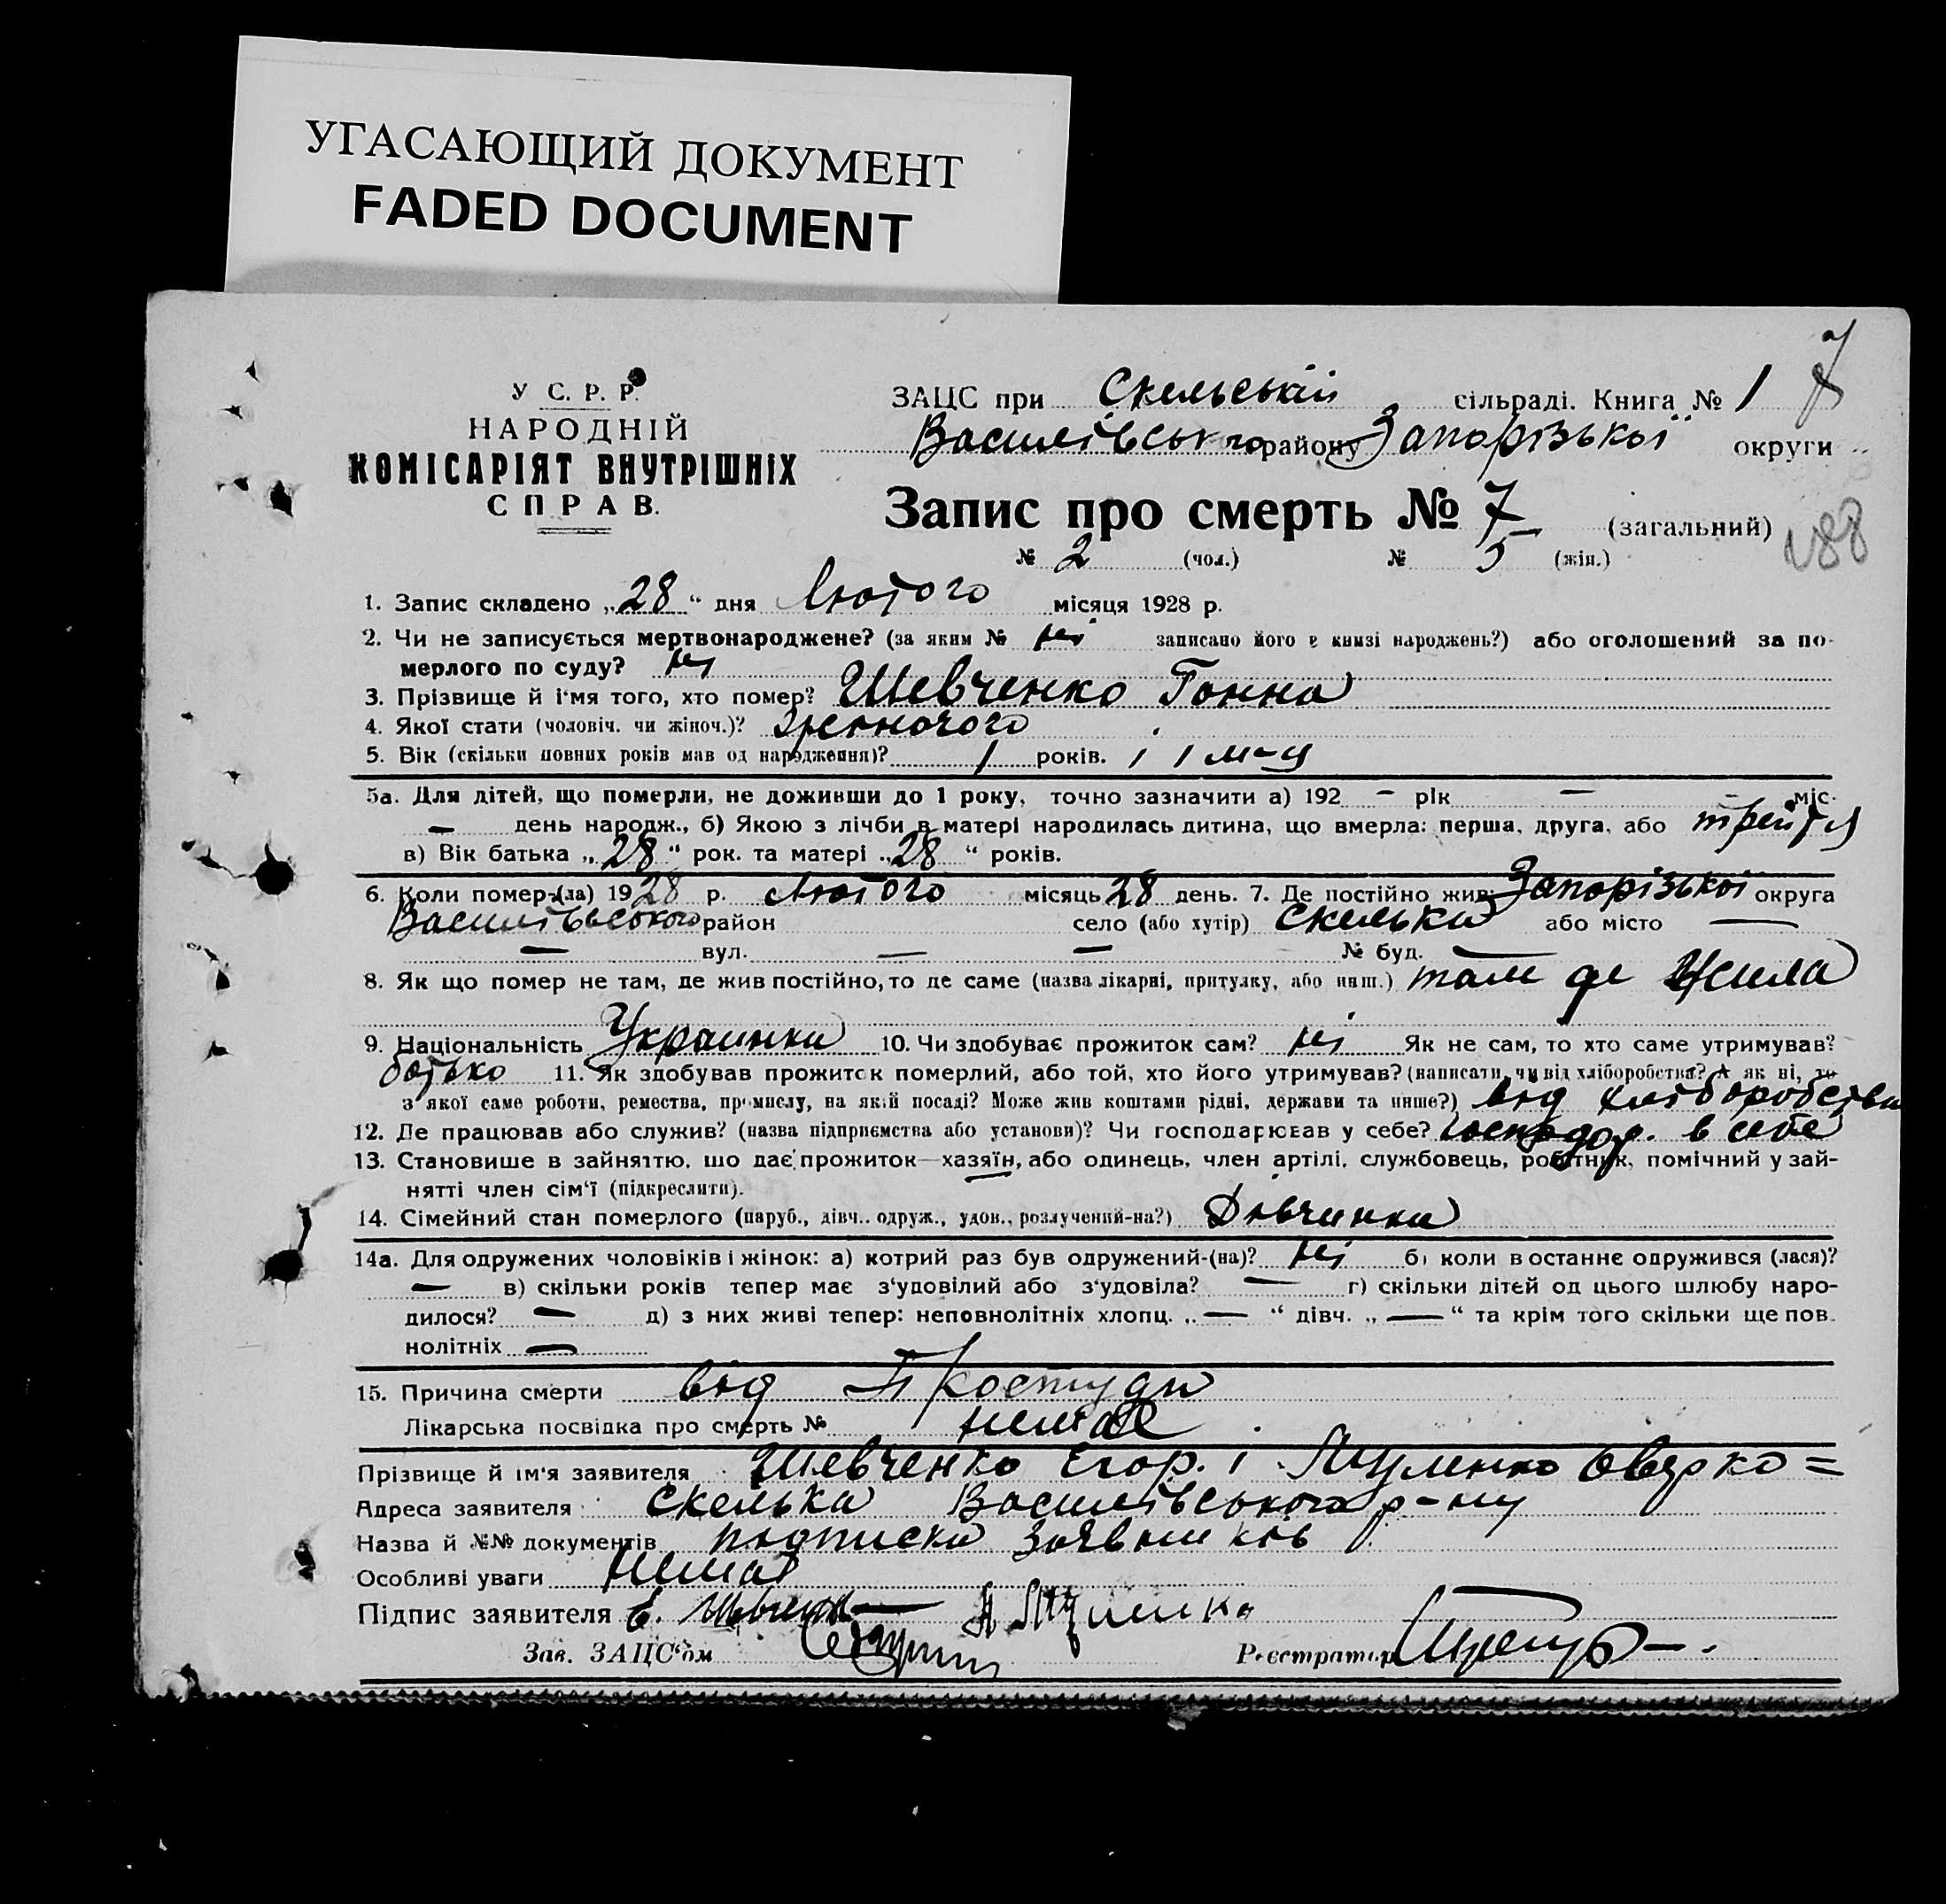 УГАСАЮЩИЙ ДОКУМЕНТ
FADED DOCUMENT
У С. Р. Р.
НАРОДНІЙ
КОМІСАРІЯТ ВНУТРІШНІХ
СПРАВ.
ЗАЦС при Скельській сільраді. Книга № 1 7
Василівського району Запорізької округи
Запис про смерть № 7 (загальний)
№ 2 (чол.) № 5 (жін.)
1. Запис складено „28" дня Лютого місяця 1928 р.
2. Чи не записується мертвонароджене? (за яким № ні записано його в книзі народжень?) або оголошений за по-
мерлого по суду? ні
3. Прізвище й ім'я того, хто помер? Шевченко Ганна
4. Якої стати (чоловіч. чи жіноч.)? жіночого
5. Вік (скільки повних років мав од народження)? 1 років. і 1 м-ц
5а. Для дітей, що померли, не доживши до 1 року, точно зазначити а) 192 – рік – – міс.
— день народж., б) Якою з лічби в матері народилась дитина, що вмерла: перша, друга, або третя
в) Вік батька „28" рок. та матері „28" років.
6. Коли помер-(ла) 1928 р. Лютого місяць 28 день. 7. Де постійно жив: Запорізької округа
Василівського район село (або хутір) Скелька або місто —
— вул. — — № буд. —
8. Як що помер не там, де жив постійно, то де саме (назва лікарні, притулку, або инш.) там де жила
9. Національність Украинка 10. Чи здобуває прожиток сам? ні Як не сам, то хто саме утримував?
батько 11. Як здобував прожиток померлий, або той, хто його утримував? (написати, чи від хліборобства? А як ні, то
з якої саме роботи, ремества, промислу, на якій посаді? Може жив коштами рідні, держави та инше?) від хліборобства
12. Де працював або служив? (назва підприємства або установи)? Чи господарював у себе? господар. в себе
13. Становище в зайняттю, що дає прожиток—хазяїн, або одинець, член артілі, службовець, робітник, помічний у зай-
нятті член сім'ї (підкреслити).
14. Сімейний стан померлого (паруб., дівч., одруж., удов., розлучений-на?) Дівчинка
14а. Для одружених чоловіків і жінок: а) котрий раз був одружений-(на)? ні б) коли востаннє одружився (лася)?
— в) скільки років тепер має з'удовілий або з'удовіла? — г) скільки дітей од цього шлюбу наро-
дилося? — д) з них живі тепер: неповнолітніх хлопц. „—" дівч. „—" та крім того скільки ще пов-
нолітніх —
15. Причина смерти від Простуди
Лікарська посвідка про смерть № немає
Прізвище й ім'я заявителя Шевченко Егор. і
Адреса заявителя Скелька Василівського р-ну
Назва й №№ документів подписка
Особливі уваги Немає
Підпис заявителя Е. Шевченко
Зав. ЗАЦС'ом
Реєстратор